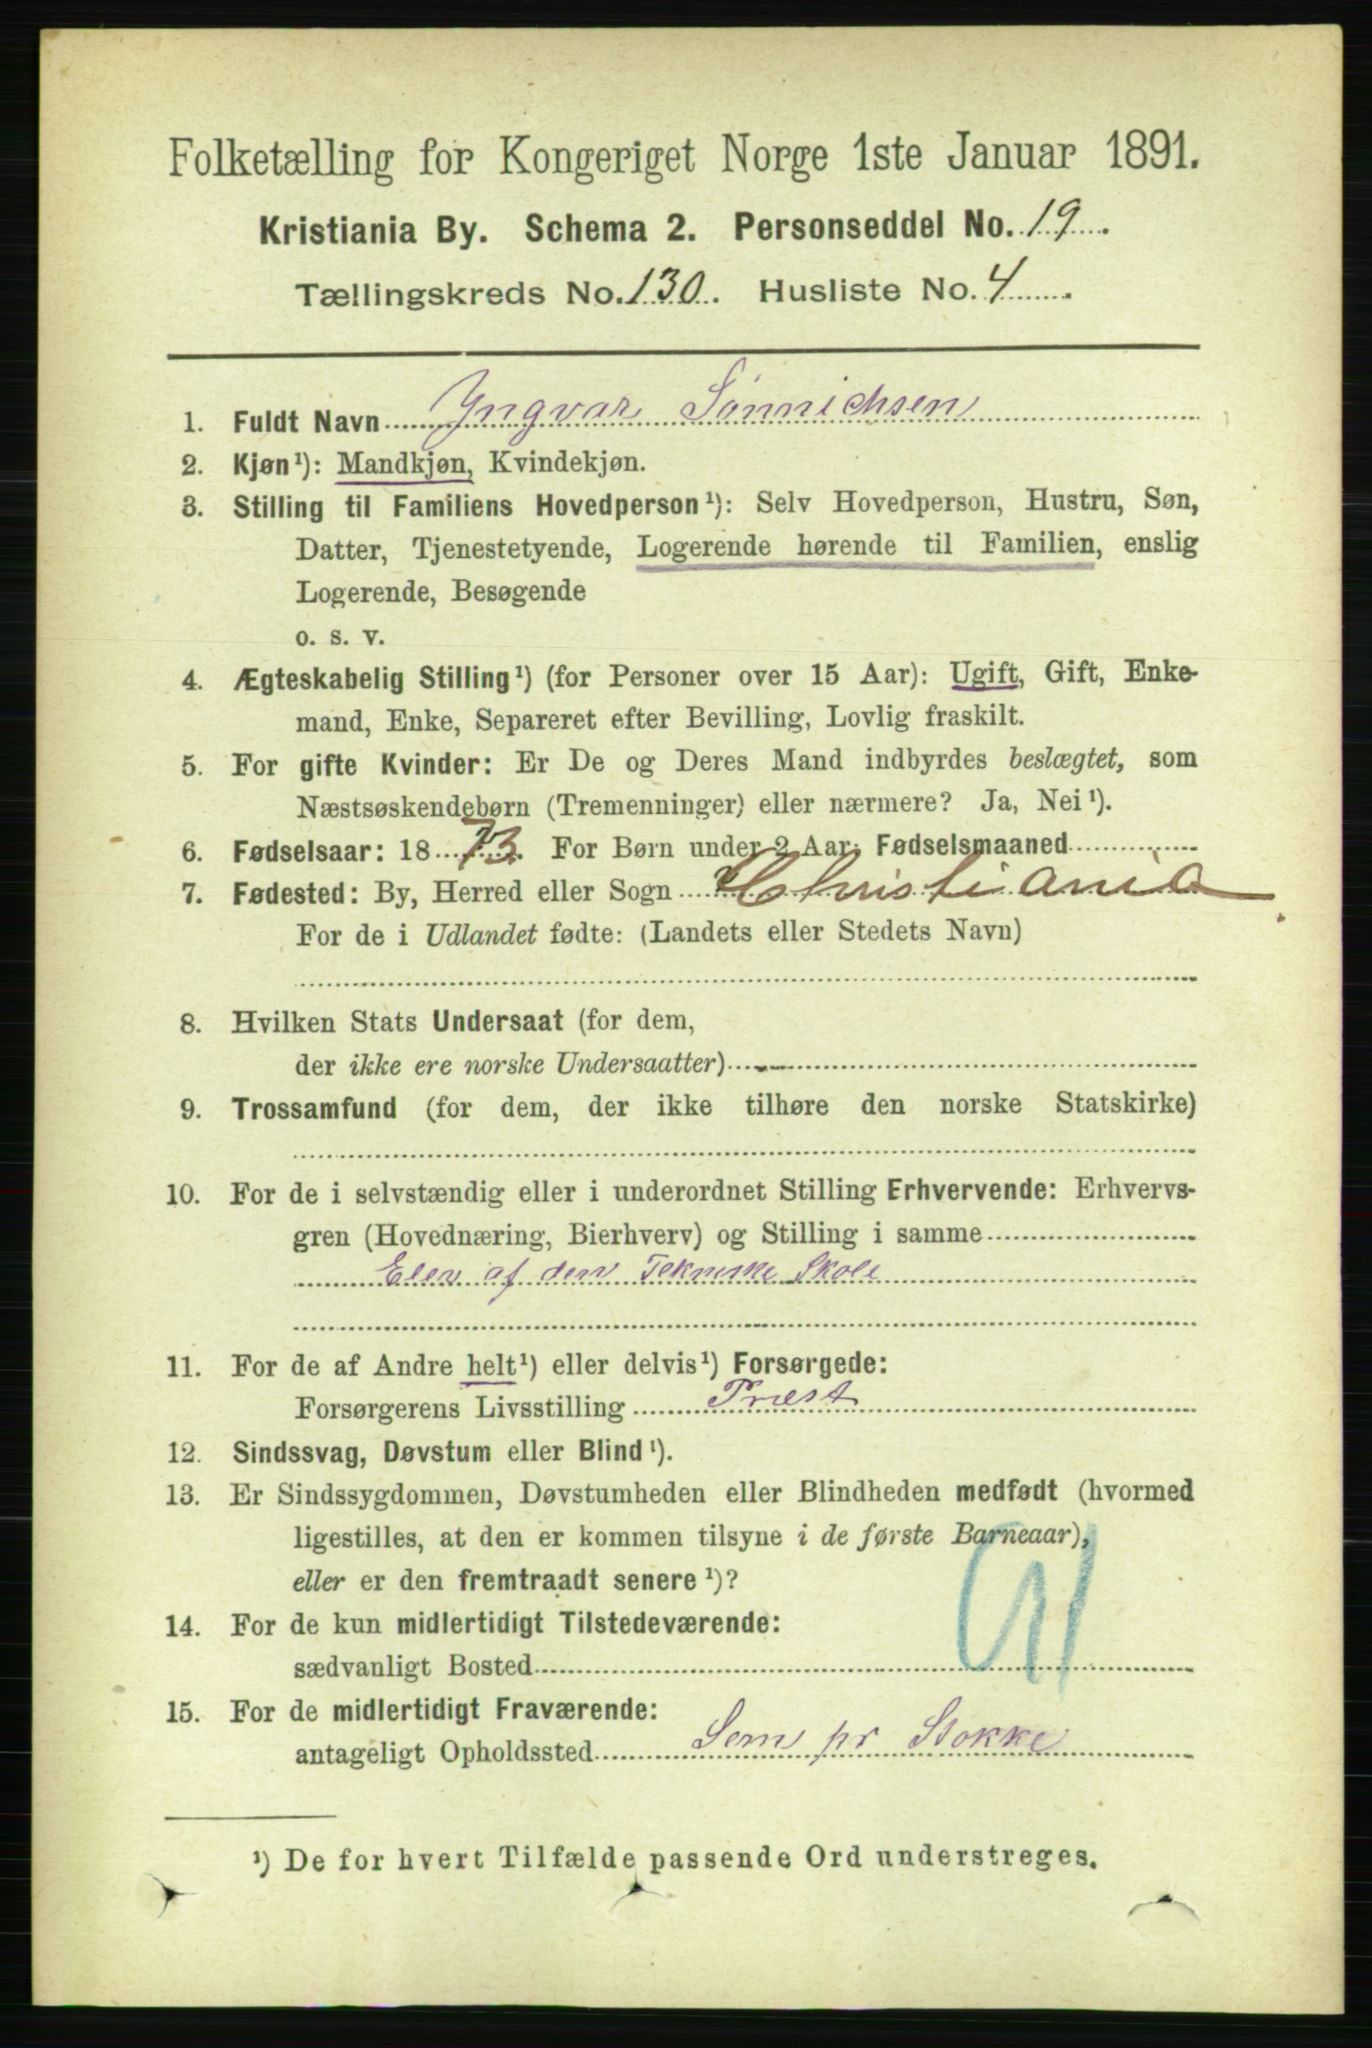 Folketælling for Kongeriget Norge 1ste Januar 1891.
Kristiania By. Schema 2. Personseddel No. 19.
Tællingskreds No. 130. Husliste No. 4.
1. Fuldt Navn Yngvar Sonnichsen
2. Kjøn¹): Mandkjøn, Kvindekjøn.
3. Stilling til Familiens Hovedperson¹): Selv Hovedperson, Hustru, Søn,
Datter, Tjenestetyende, Logerende hørende til Familien, enslig
Logerende, Besøgende
o. s. v.
4. Ægteskabelig Stilling¹) (for Personer over 15 Aar): Ugift, Gift, Enke-
mand, Enke, Separeret efter Bevilling, Lovlig fraskilt.
5. For gifte Kvinder: Er De og Deres Mand indbyrdes beslægtet, som
Næstsøskendebørn (Tremenninger) eller nærmere? Ja, Nei¹).
6. Fødselsaar: 1873. For Børn under 2 Aar: Fødselsmaaned
7. Fødested: By, Herred eller Sogn Christiania
For de i Udlandet fødte: (Landets eller Stedets Navn)
8. Hvilken Stats Undersaat (for dem,
der ikke ere norske Undersaatter)
9. Trossamfund (for dem, der ikke tilhøre den norske Statskirke)
10. For de i selvstændig eller i underordnet Stilling Erhvervende: Erhvervs-
gren (Hovednæring, Bierhverv) og Stilling i samme
Elev af den Tekniske Skole
11. For de af Andre helt¹) eller delvis¹) Forsørgede:
Forsørgerens Livsstilling Præst
12. Sindssvag, Døvstum eller Blind¹).
13. Er Sindssygdommen, Døvstumheden eller Blindheden medfødt (hvormed
ligestilles, at den er kommen tilsyne i de første Barneaar),
eller er den fremtraadt senere¹)?
14. For de kun midlertidigt Tilstedeværende:
sædvanligt Bosted
15. For de midlertidigt Fraværende:
antageligt Opholdssted Sem pr Stokke
¹) De for hvert Tilfælde passende Ord understreges.